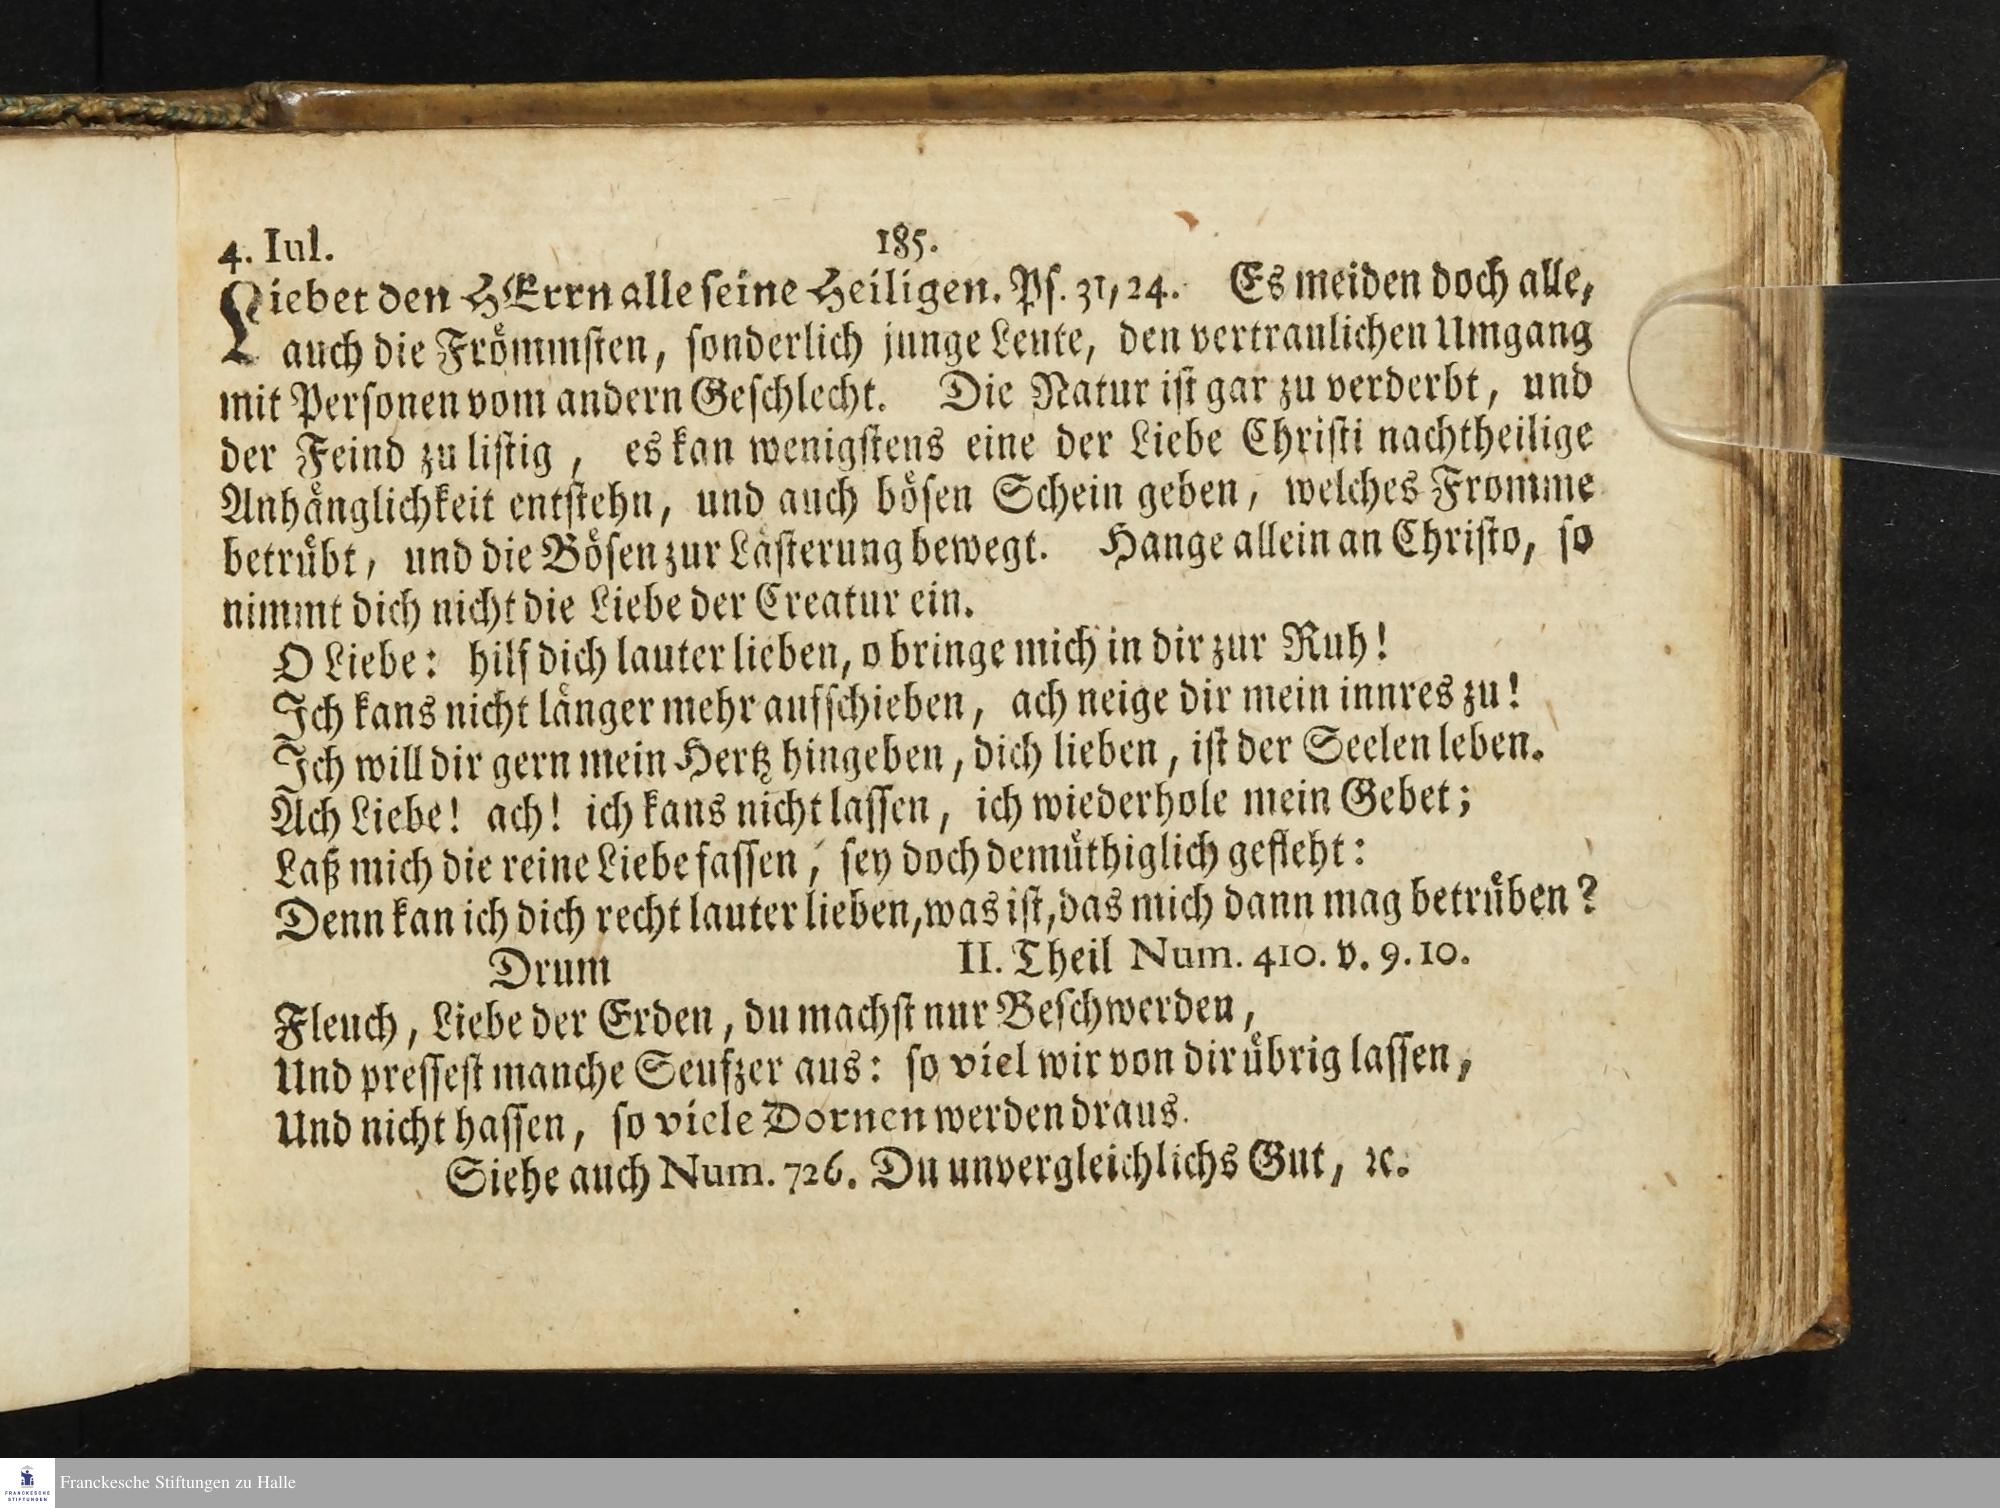 4. Iul.
185.
Liebet den HErrn alle seine Heiligen. Ps. 31, 24. Es meiden doch alle,
auch die Frömmsten, sonderlich junge Leute, den vertraulichen Umgang
mit Personen vom andern Geschlecht. Die Natur ist gar zu verderbt, und
der Feind zu listig, es kan wenigstens eine der Liebe Christi nachtheilige
Anhänglichkeit entstehn, und auch bösen Schein geben, welches Fromme
betrübt, und die Bösen zur Lästerung bewegt. Hange allein an Christo, so
nimmt dich nicht die Liebe der Creatur ein.
O Liebe: hilf dich lauter lieben, o bringe mich in dir zur Ruh!
Ich kans nicht länger mehr aufschieben, ach neige dir mein innres zu!
Ich will dir gern mein Hertz hingeben, dich lieben, ist der Seelen leben.
Ach Liebe! ach! ich kans nicht lassen, ich wiederhole mein Gebet;
Laß mich die reine Liebe fassen, sey doch demüthiglich gefleht:
Denn kan ich dich recht lauter lieben, was ist, das mich dann mag betrüben?
Drum II. Theil Num. 410. v. 9. 10.
Fleuch, Liebe der Erden, du machst nur Beschwerden,
Und pressest manche Seufzer aus: so viel wir von dir übrig lassen,
Und nicht hassen, so viele Dornen werden draus.
Siehe auch Num. 726. Du unvergleichlichs Gut, ꝛc.
FRANCKESCHE
STIFTUNGEN
Franckesche Stiftungen zu Halle